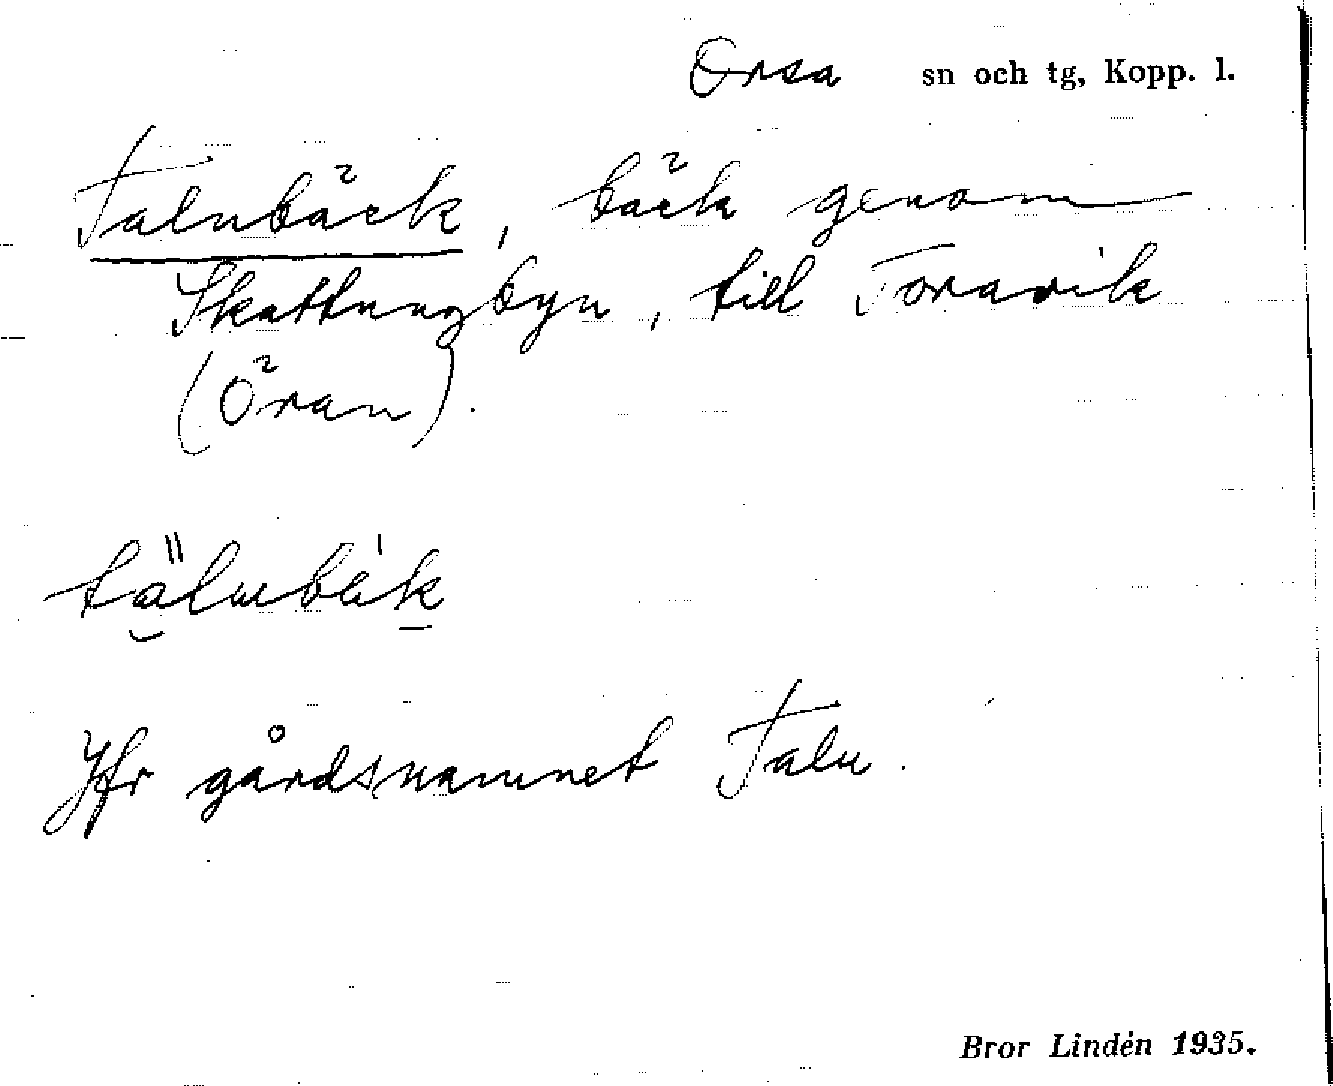 Orsa sn och tg, Kopp. l.
Talubäck, bäck genom
Skattungbyn, till Toravik
(Öran).
tälubäk
Jfr gårdsnamnet Talu.
Bror Lindén 1935.